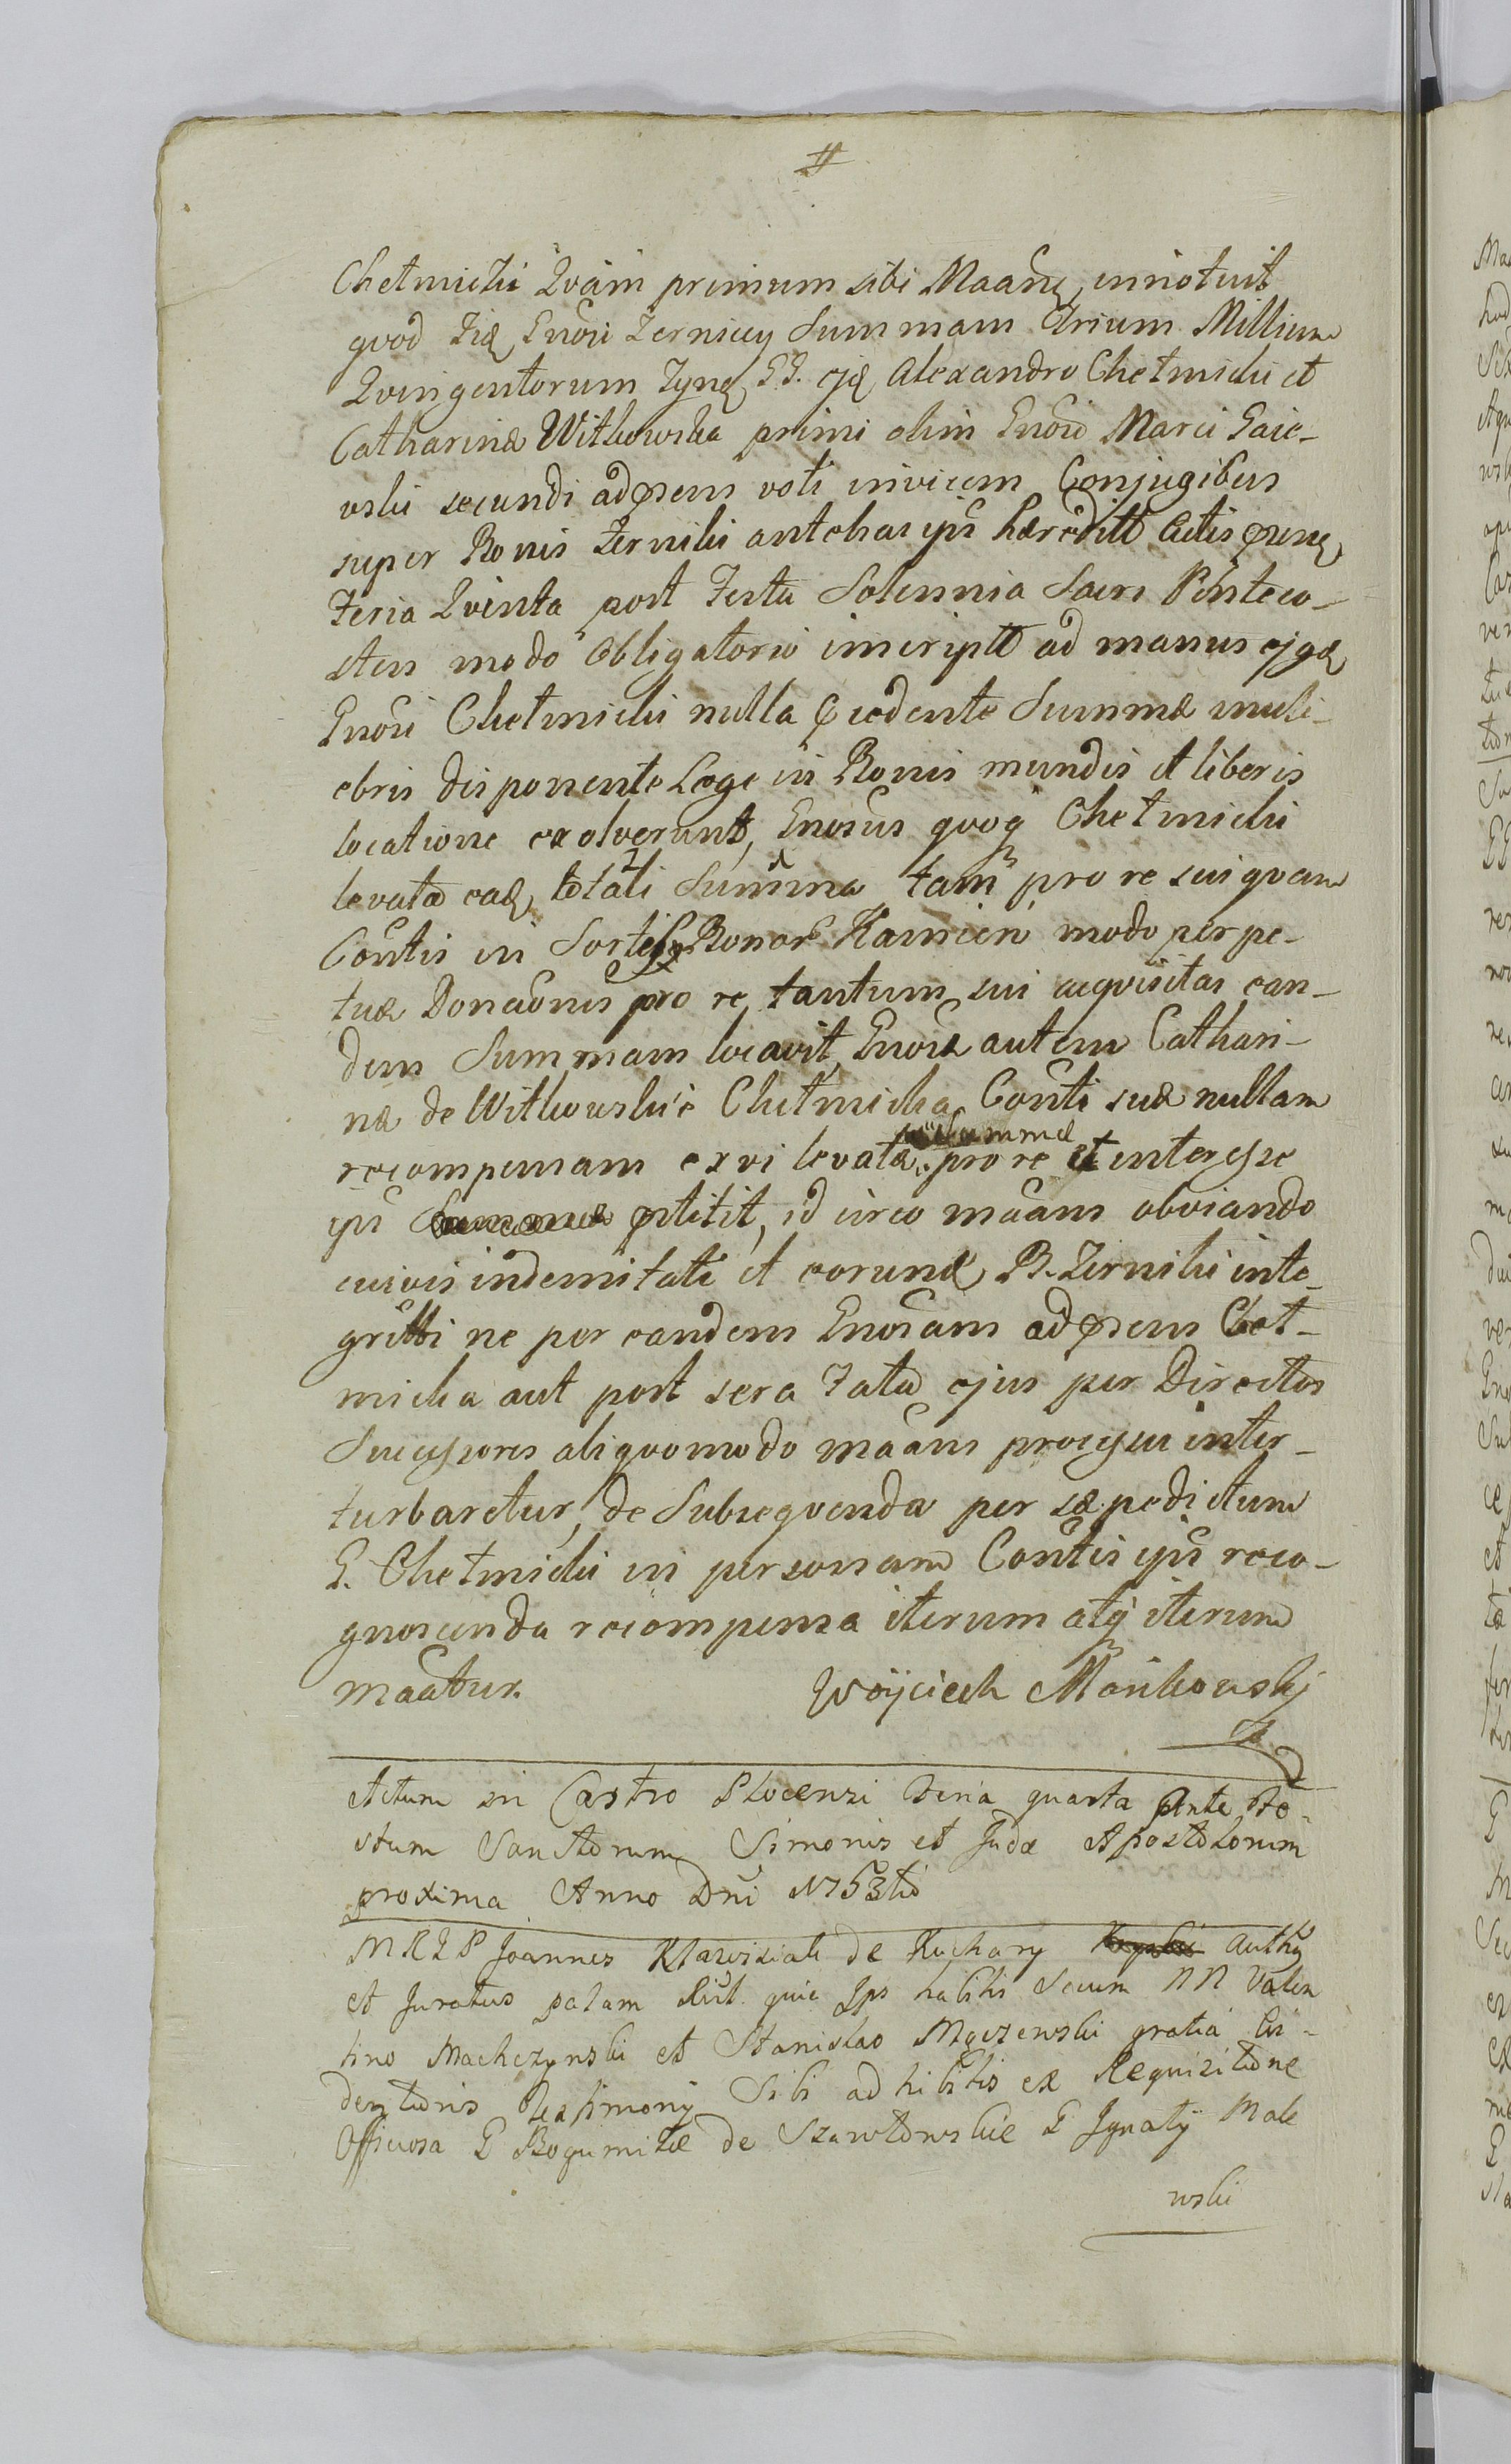 Chełmicki Qvam primum sibi Maanẽ, innotuit
qvod Gñosi Zerniccy Summam Trium Millium
Qvingentorum GG. Alexandro Chełmicki et
Catharina Witkowska primi olim Gnosi Marci Gaie-
wski secundi adpsens voti invicem Conjugibus
super Bonis Zerniki antehac ipis hæreditt Actis
Feria Qvinta post Festa Solennia Sacri Penteco-
stes modo obligatorio inscriptt ad manus
Gnosi Chełmicki nulla pcedente Summæ muli-
ebris disponente Lege in Bonis mundis et liberis
locatione exolverunt, Gnosus qvoq Chełmicki
levata totali Summa tam pro re sui qvam
Contis in Sortes Bonor Kamien modo perpe-
tuæ Donaonis pro re tantum sui acqvisitas ean-
dem Summam locavit, Gnosæ autem Cathari-
næ de Witkowskie Chełmicka Conti suæ nullam
recompensam ex vi levatæ Summæ pro re et interesse
ipi pstitit, id circo maans obviando
cuivis indemnitati et eorund B. Zerniki inte-
gritti ne per eandem Gnosam adpsens Cheł-
micka aut post sera Fata ejus per Directos
Successores aliqvomodo maans processu inter-
turbaretur, de Subseqvenda per sæpedictum
G. Chełmicki in personam Contis ipis reco-
gnoscenda recompensa iterum atq iterum
maatur. Woyciech Mańkowsky
Actum in Castro Plocensi Feria quarta Ante Fe-
stum Sanctorum Simonis et Judæ Apostolorum
proxima Anno Dni 1753tio
MRGP Joannes Klawisiak de Kuchary Auths
et Juratus palam Rcit quia Ips habitis Secum NN Valen
tino Machczynski et Stanislao Mączewski gratia Evi-
dentioris Testimony Sibi adhibitis ex Requisitione
Officiosa G Bogumilæ de Szawłowskie G Ignaty Male
wski